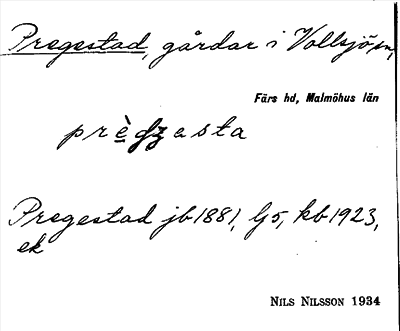 Pregestad, gårdar i Vollsjö sn,
Färs hd, Malmöhus län
prèdzasta
Pregestad jb 1881, Gs, kb 1923,
ek
NILS NILSSON 1934